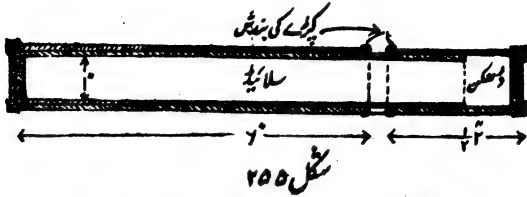 کپڑے کی بندش
سلائیڈ
ڈھکن
۶"
۲ ۱/۲"
شکل ۲۵۵